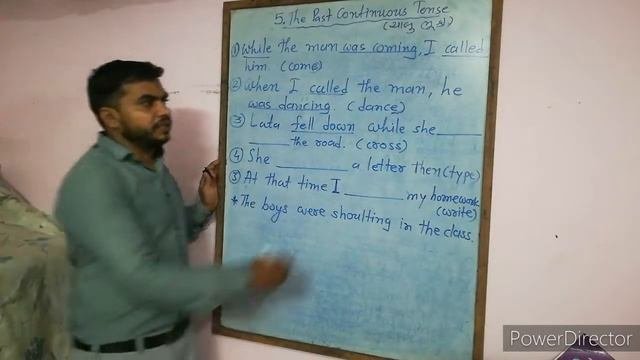 5. The Past Continuous Tense
(ચાલુ ભૂતકાળ)
① While the man was coming, I called
him. (come)
② When I called the man, he
was dancing. (dance)
③ Lata fell down while she______
______the road. (cross)
④ She ________ a letter then(type)
⑤ At that time I ______ my homework
(write)
* The boys were shoulting in the class.
PowerDirector